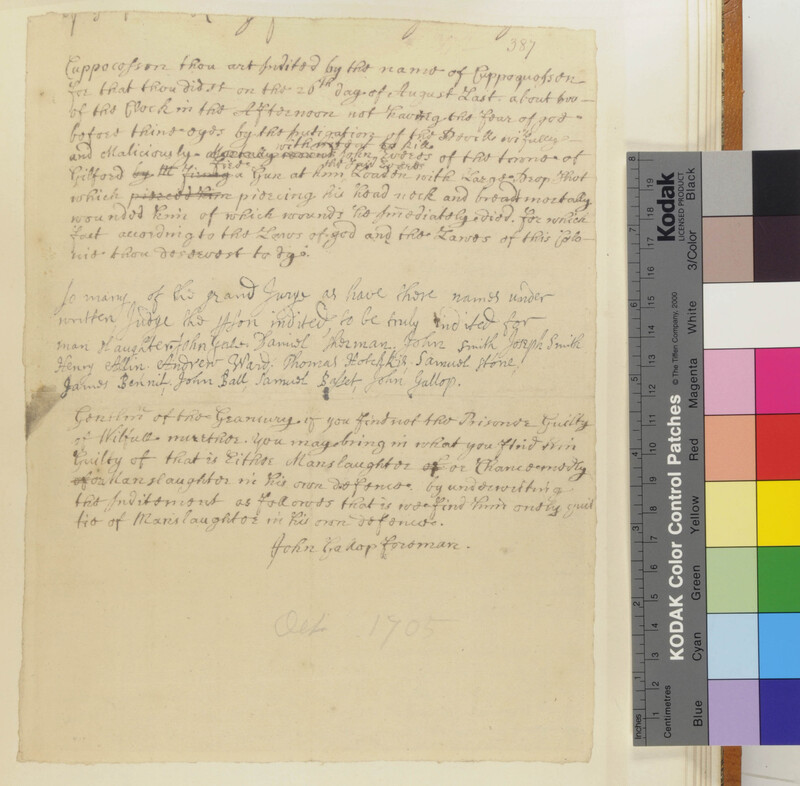 387
Cuppocosson thou art Indited by the name of Cuppoquosson
for that thou didst on the 20th day of August Last about
of the Clock in the Afternoon not haveing the fear of god
before thine eyes by the Instigation of the Devill wilfully
and Maliciously with intent to kill John Evarts of the towne of
Gilford by fire a Gun at him Loaden with Large Drop Shot
which pierced him piercing his head neck and breast mortally
wounded him of which wounds he Imediately died. for which
fact according to the Laws of god and the Lawes of this Colo-
nie thou deservest to dye.
So many of the grand Jurye as have there names under
written Judge the pson indited to be truly Indited for
man slaughter John Gale Daniel Sherman, John Smith Joseph Smith
Henry Allin Andrew Ward. Thomas Hotchkis, Samuel stone,
James Bennit, John Ball, Samuel Basset, John Gallop.
Gentlmn of the Granjury if you find not the Prisoner Guilty
of Wilfull murther. you may bring in what you find him
Guilty of that is Either Manslaughter or Chancemedly
or Manslaughter in his own defence. by underwriting
the Inditement as followes that is we find him onely guil
tie of Manslaughter in his own defence.
John Gallop foreman.
Oct 1705
KODAK Color Control Patches
© The Tiffen Company, 2000
Kodak
LICENSED PRODUCT
Blue
Cyan
Green
Yellow
Red
Magenta
White
3/Color
Black
Inches
Centimetres